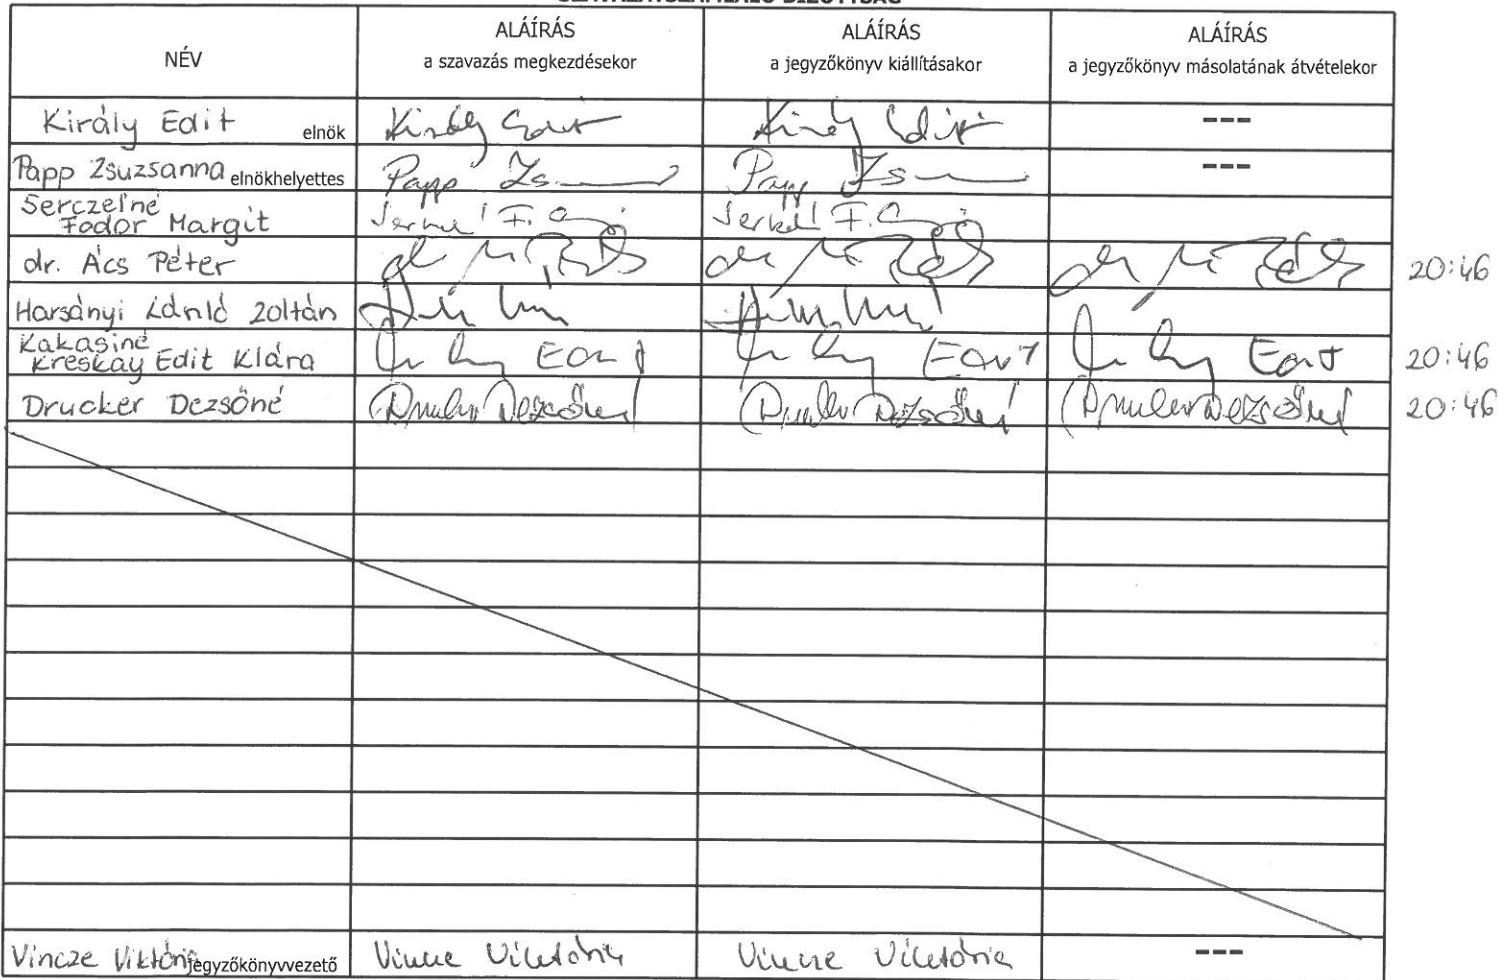 SZAVAZATSZÁMLÁLÓ BIZOTTSÁG
NÉV
ALÁÍRÁS
a szavazás megkezdésekor
ALÁÍRÁS
a jegyzőkönyv kiállításakor
ALÁÍRÁS
a jegyzőkönyv másolatának átvételekor
Király Edit elnök Király Edit Király Edit ---
Papp Zsuzsanna elnökhelyettes Papp Zs Papp Zs ---
Serczelné
Fodor Margit
dr. Ács Péter 20:46
Harsányi Zoltán
Kakasiné
Kreskay Edit Klára Edit Edit Edit 20:46
Drucker Dezsőné Drucker Dezsőné Drucker Dezsőné Drucker Dezsőné 20:46
Vincze Viktória jegyzőkönyvvezető Vincze Viktória Vincze Viktória ---